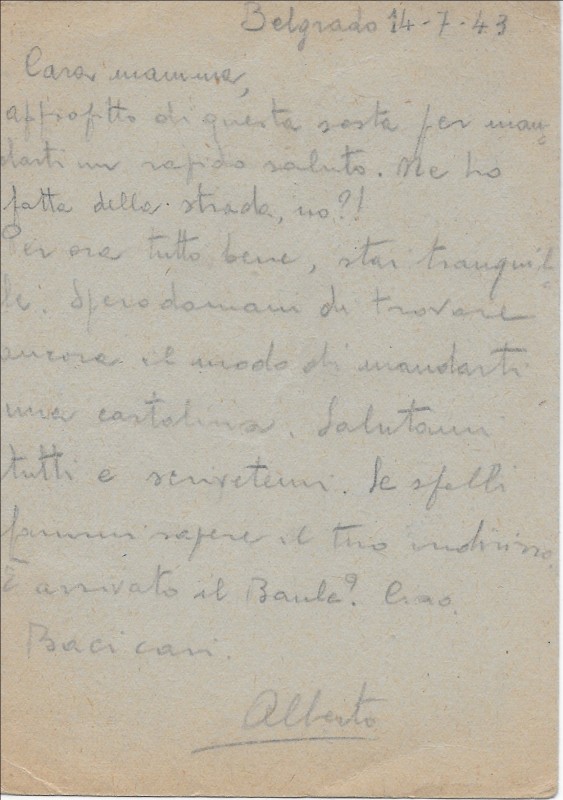 Belgrado 14-7-43
Cara mamma,
approfitto di questa sosta per man-
darti un rapido saluto. Ne ho
fatta della strada, no?!
Per ora tutto bene, stai tranquil-
la. Spero domani di trovare
ancora il modo di mandarti
una cartolina. Salutami
tutti e scrivetemi. Se sfolli
fammi sapere il tuo indirizzo.
È arrivato il Baule? Ciao.
Baci cari.
Alberto